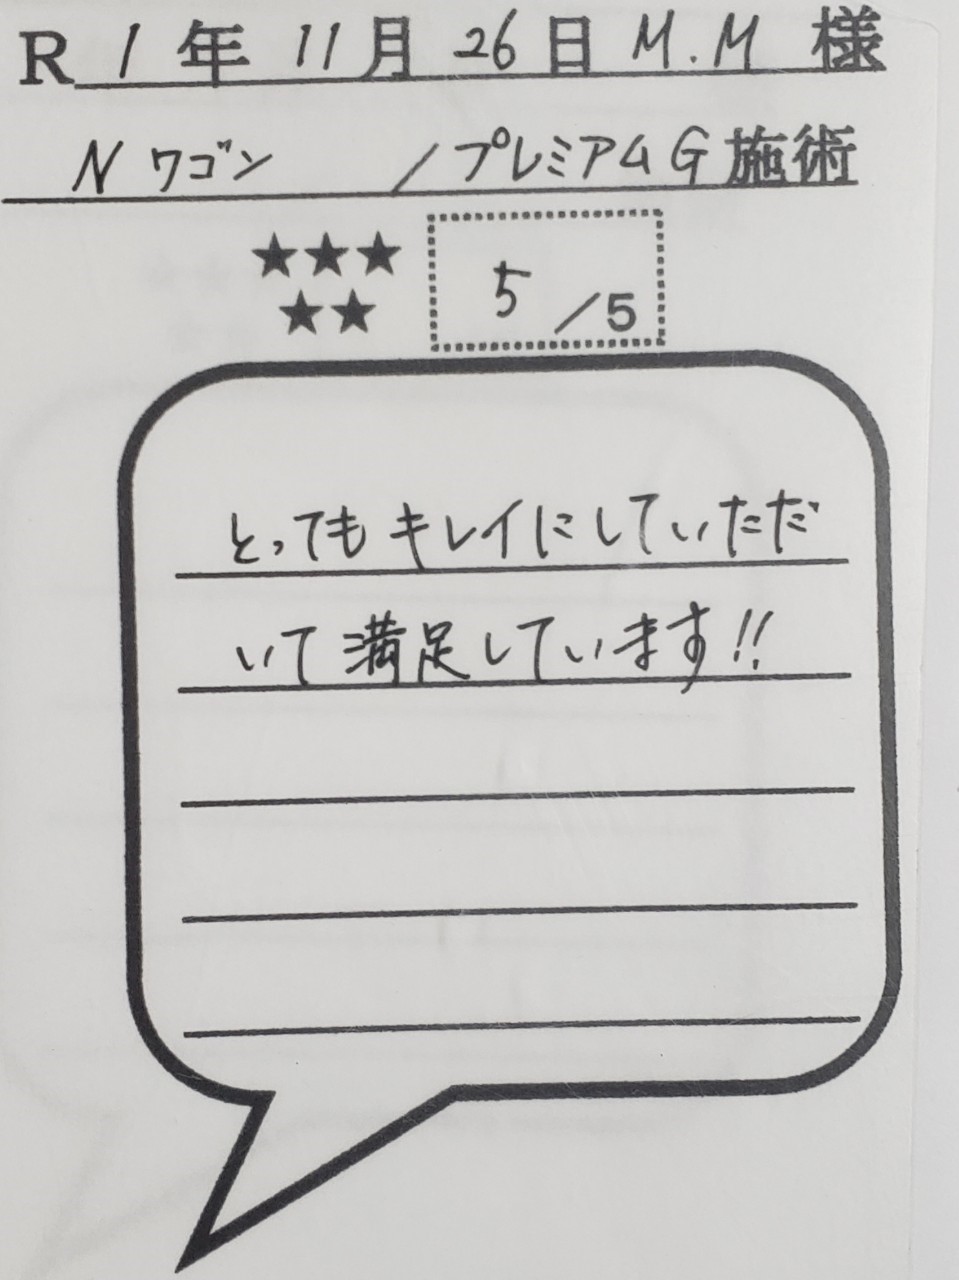 R 1 年 11 月 26 日 M.M 様
N ワゴン /プレミアムG 施術
★★★
★★
5 /5
とってもキレイにしていただ
いて満足しています!!